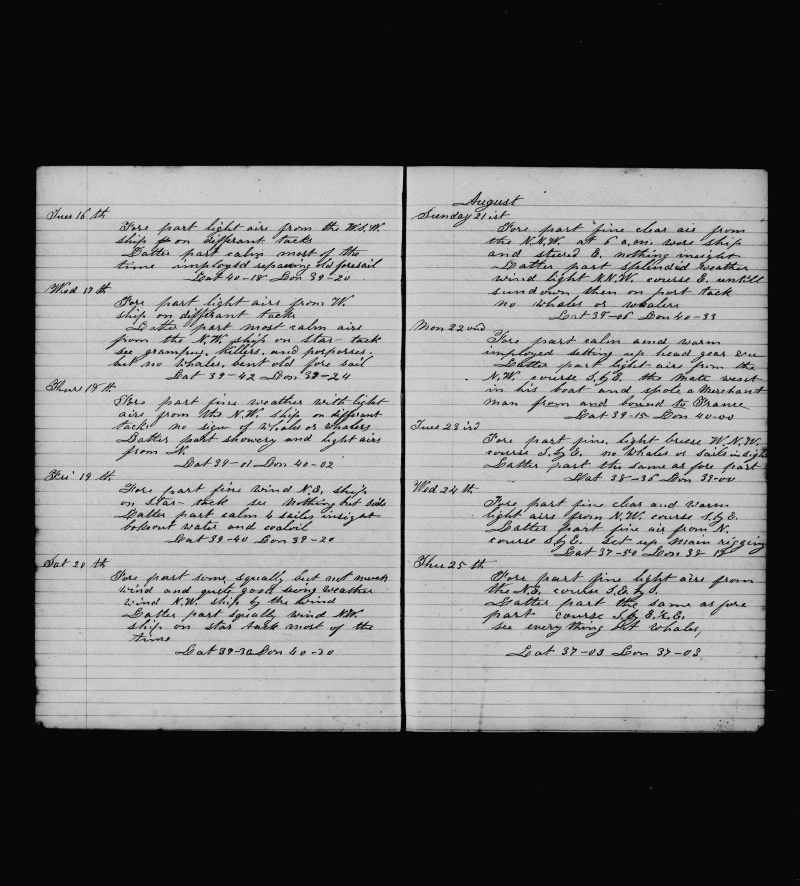 Tues 16 th
Fore part light airs from the W.S.W.
ship on differant tacks
Latter part calm most of the
time imployd repairing old foresail
Lat 40-18 Lon 39-20
Wed 17 th
Fore part light airs from W.
ship on differant tacks
Latter part most calm airs
from the N.W. ship on star-tack
see grampus, killers, and porposes,
but no whales, bent old fore sail
Lat 39-42 Lon 39-24
Thurs 18 th
Fore part fine weather with light
airs from the N.W. ship on differant
tacks no sign of whals or whalers
Latter part showery and light airs
from N.
Lat 39-01 Lon 40-02
Fri 19 th
Fore part fine wind N.E, ship
on star-tack see nothing but
Latter part calm 4 sailes insight
brok out water and coal oil
Lat 39-40 Lon 39-20
Sat 20 th
Fore part some squally but not much
wind and quite good seeing weather
wind N.W. ship by the wind
Latter part squally wind N.W.
ship on star tack most of the
time
Lat 39-30 Lon 40-30
August
Sunday 21 ist
Fore part fine clear air from
the N.N.W. at 6 a.m. wore ship
and steered E. nothing insight
Latter part splendid weather
wind light N.N.W. course E. untill
sundown then on port tack
no whales or whalers
Lat 38-06 Lon 40-33
Mon 22 nd
Fore part calm amd warm
imployed setting up head gear &c
Latter part light airs from the
N.W. course S.by E. the Mate went
in his boat and spoke a Merchant
man from and bound to France
Lat 39-15 Lon 40-00
Tues 23 rd
Fore part fine, light breese W.N.W.
course S.by E. no whales or sails insight
Latter part the same as fore part
Lat 38-36 Lon 39-00
Wed 24 th
Fore part fine clear and warm
light airs from N.W. course S.by E.
Latter part fine air from N.
course S.by E. set up main rigging
Lat 37-50 Lon 38
Thu 25 th
Fore part fine light airs from
the N.E. course S.E. by S.
Latter part the same as fore
part course S.by E.&.E.
see everything but whales,
Lat 37-03 Lon 37-03